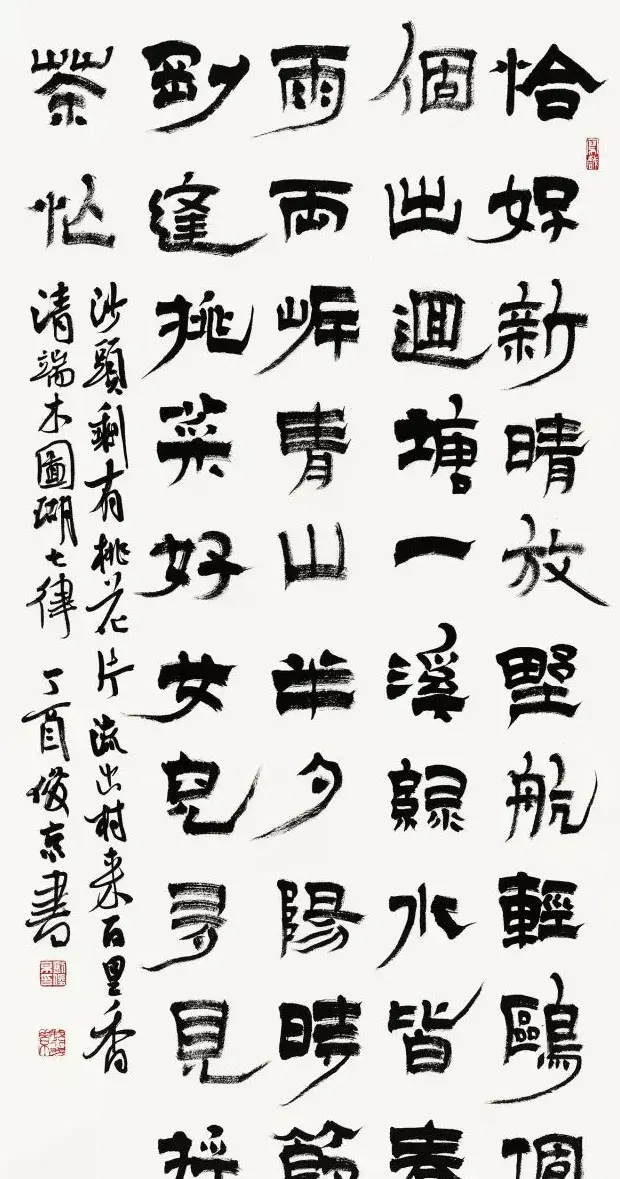 恰好新晴放野航輕鷗個
個出迴塘一溪綠水皆春
雨兩岸青山半夕陽時節
剛逢挑菜好女兒多見採
茶忙
沙頭剩有桃花片流出村来百里香
清端木國瑚七律 丁酉俊京書